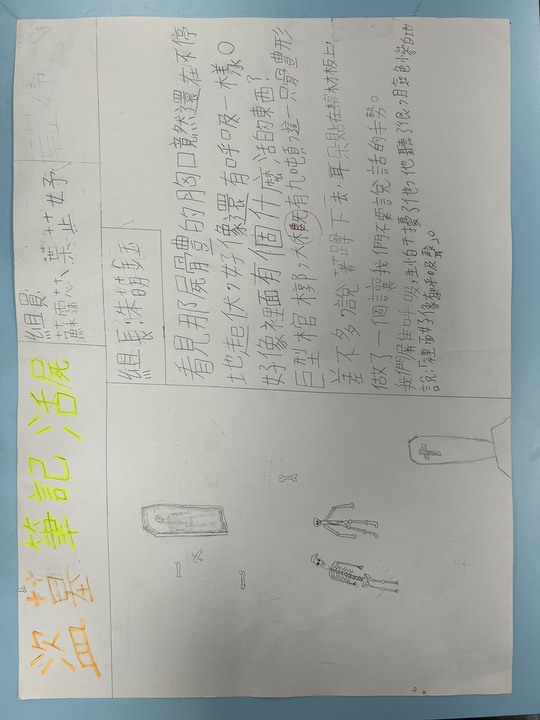 盜墓筆記 活屍
組員:
蘇霈芯、葉芷妤
組長:洙萌鈺
看見那屍體的胸口竟然還在不停
地起伏,好像還有呼吸一樣。
好像裡面有個什麼活的東西?
巨型棺槨,大概有九噸,這一只骨壘形
差不多,說著蹲下去,耳朵貼在棺材板上,
做了一個讓我們不要說話的手勢。
我們屏住呼吸,生怕干擾了他,他聽了很,月氣色慘白的
說:「裡面好像有呼吸聲」。